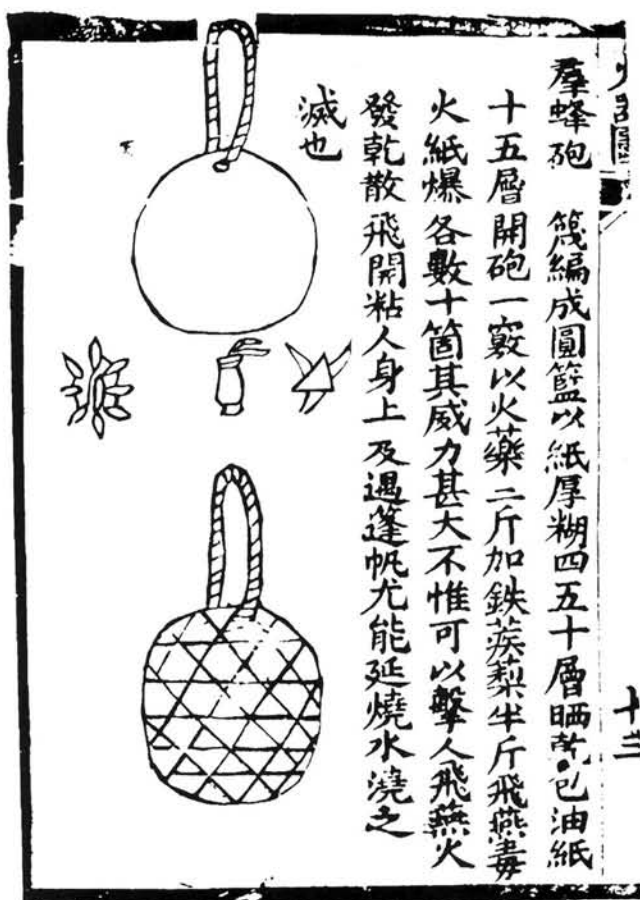 火器圖
十三
羣蜂砲　篾編成圓籃以紙厚糊四五十層晒乾包油紙
十五層開砲一竅以火藥二斤加鉄蒺藜半斤飛燕毒
火紙爆各數十箇其威力甚大不惟可以擊人飛燕火
發乾散飛開粘人身上及遇篷帆尤能延燒水澆之
滅也